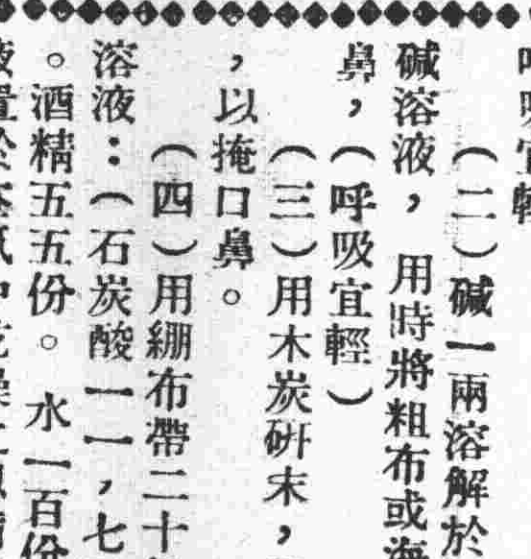 呼吸宜輕
（二）碱一兩溶解於
碱溶液，用時將粗布或海
鼻，（呼吸宜輕）
（三）用木炭硏末，
，以掩口鼻。
（四）用綳布帶二十
溶液：（石炭酸一一，七
。酒精五五份。水一百份
液置於